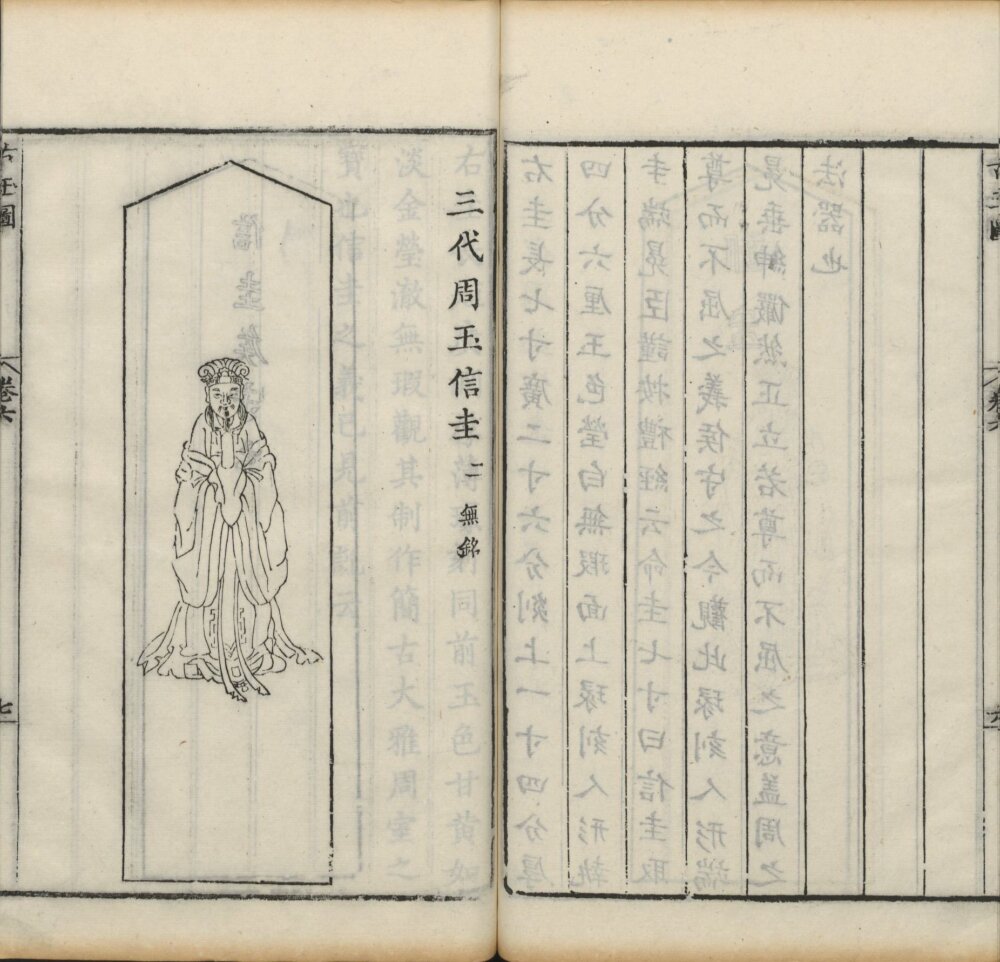 右圭長七寸廣二寸六分剡上一寸四分厚
四分六厘玉色瑩白無瑕面上琢刻人形執
圭端冕臣謹按禮經云命圭七寸曰信圭取
尊而不屈之義侯守之今觀此琢刻人形端
冕垂紳儼然正立若尊而不屈之意蓋周之
法器也
三代周玉信圭 一 無銘
右 同前玉色甘黃如
淡金瑩澈無瑕觀其制作簡古大雅周室之
寶也信圭之義已見前說云
古玉圖 卷六 七